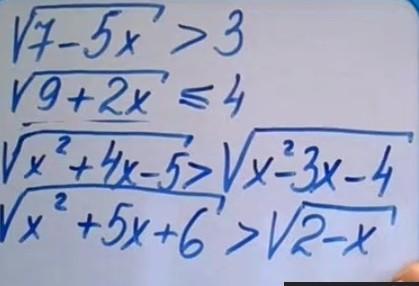 √(7-5x) > 3
√(9+2x) ≤ 4
√(x²+4x-5) > √(x²-3x-4)
√(x²+5x+6) > √(2-x)